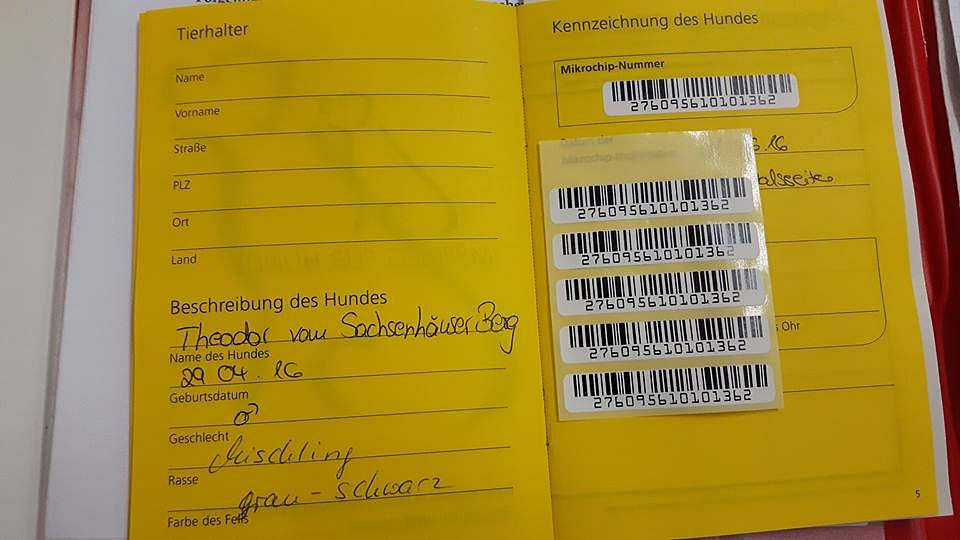 Tierhalter
Name
Vorname
Straße
PLZ
Ort
Land
Beschreibung des Hundes
Theodor vom Sachsenhäuser Berg
Name des Hundes
29 04. 16
Geburtsdatum
♂
Geschlecht
Mischling
Rasse
grau - schwarz
Farbe des Fells
Kennzeichnung des Hundes
Mikrochip-Nummer
276095610101362
Datum der
Mikrochip-Implantation
16
alsseite
276095610101362
276095610101362
276095610101362
276095610101362
276095610101362
Ohr
5